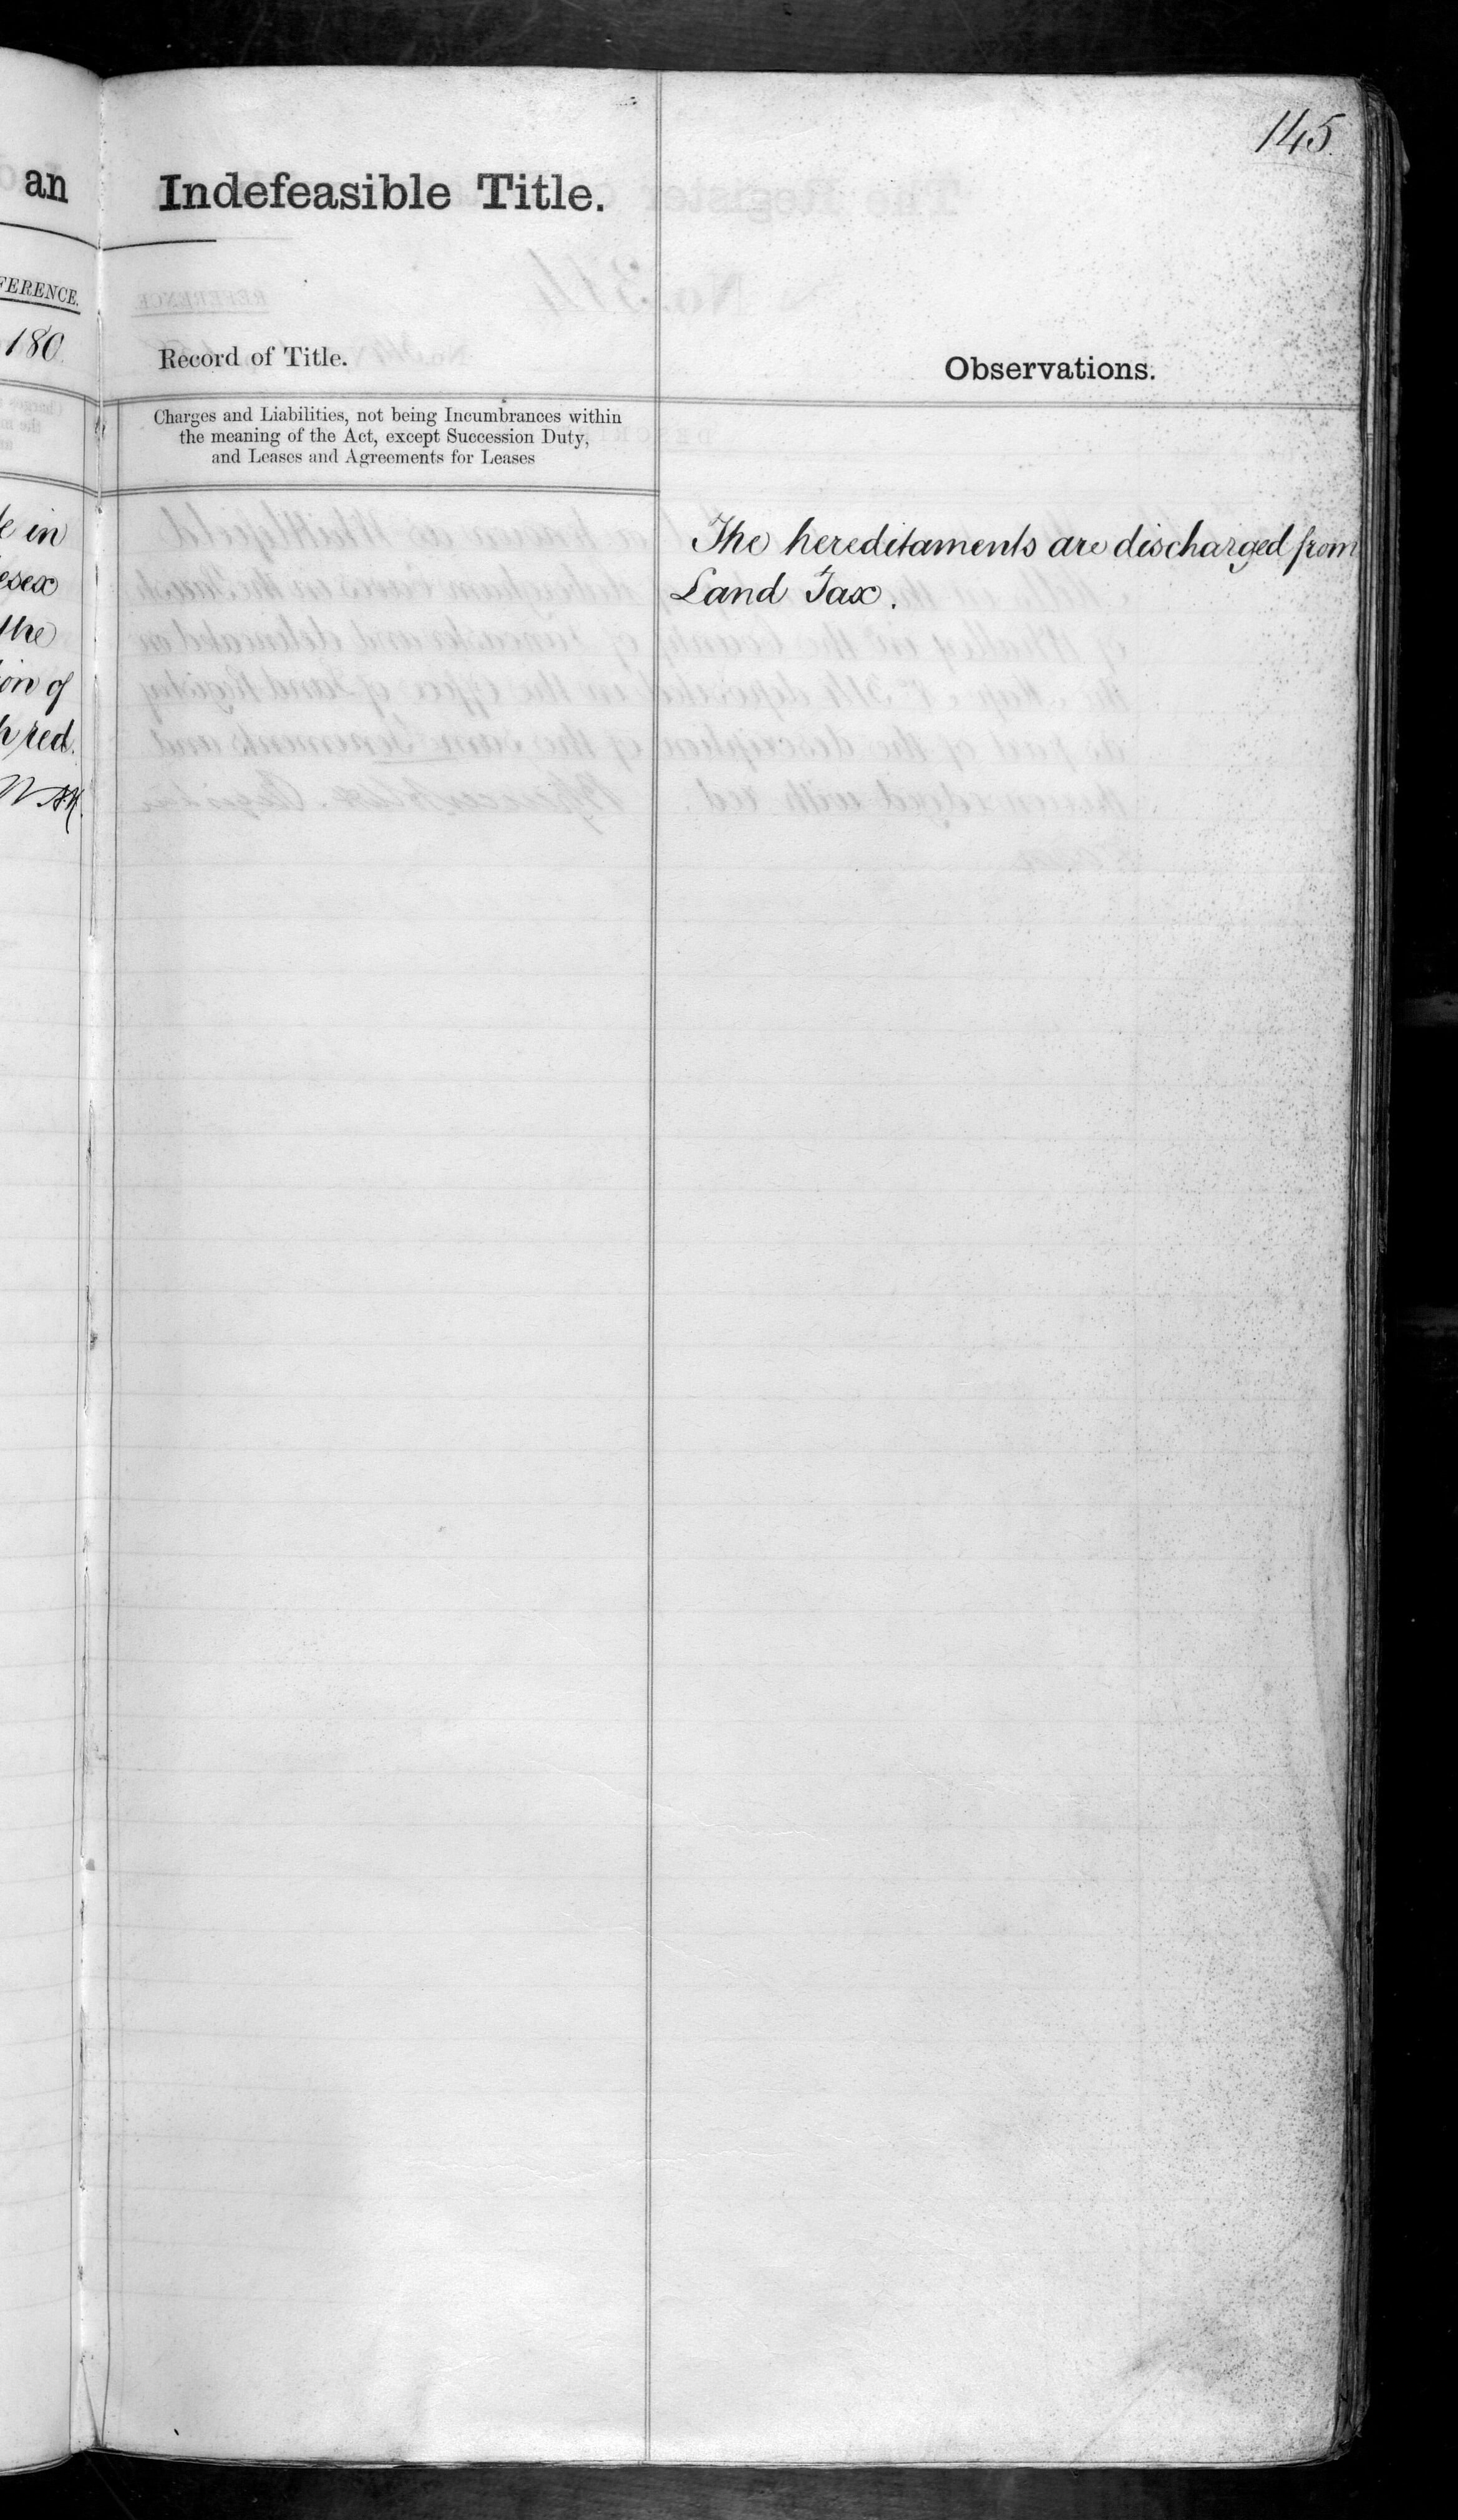 145.
an
Indefeasible Title.
FERENCE.
180
Record of Title.
Observations.
Charges and Liabilities, not being Incumbrances within
the meaning of the Act, except Succession Duty,
and Leases and Agreements for Leases
The hereditaments are discharged from
Land Tax.
in
esex
the
ion of
red.